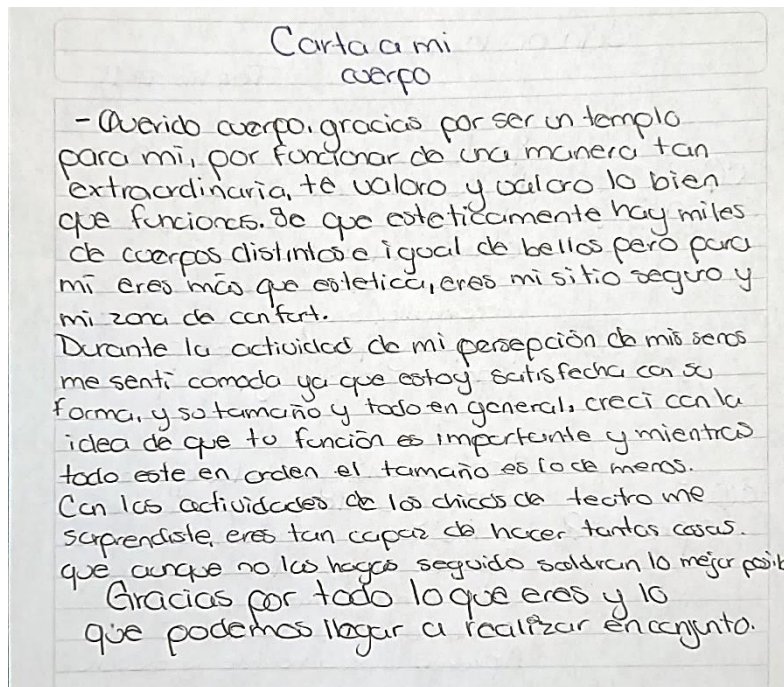 Carta a mi
cuerpo
- Querido cuerpo, gracias por ser un templo
para mi, por funcionar de una manera tan
extraordinaria, te valoro y valoro lo bien
que funciones. Se que esteticamente hay miles
de cuerpos distintos e igual de bellos pero para
mi eres más que estetica, eres mi sitio seguro y
mi zona de confort.
Durante la actividad de mi persepción de mis senos
me senti comoda ya que estoy satisfecha con su
forma, y su tamaño y todo en general, creci con la
idea de que tu función es importante y mientras
todo este en orden el tamaño es lo de menos.
Con las actividades de los chicos de teatro me
sorprendiste, eres tan capaz de hacer tantas cosas.
que aunque no las hagas seguido saldran lo mejor posib
Gracias por todo lo que eres y lo
que podemos llegar a realizar en conjunto.